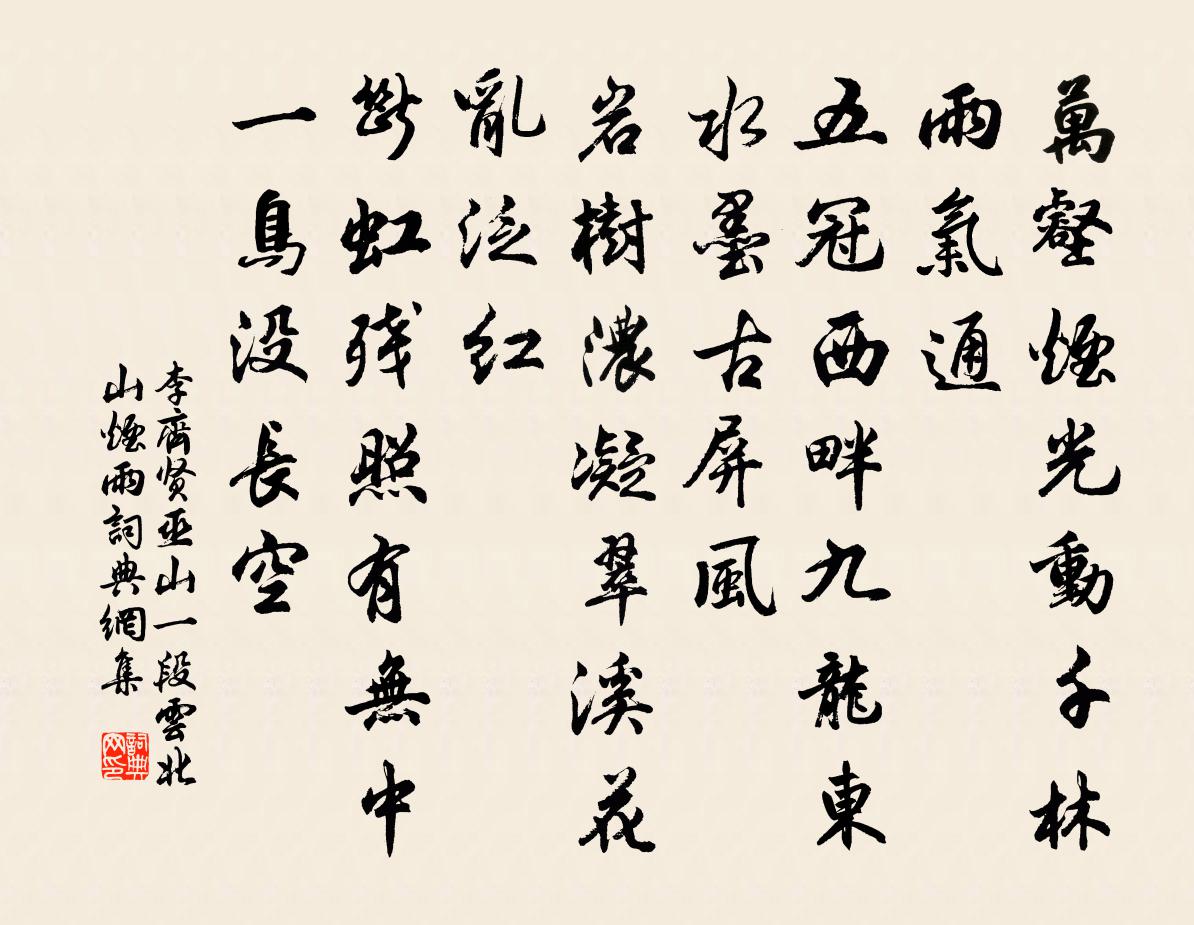 萬壑煙光動千林
雨氣通
五冠西畔九龍東
水墨古屏風
岩樹濃凝翠溪花
亂泛红
斷虹殘照有無中
一鳥没長空
李齊贤巫山一段雲北
山煙雨詞典網集
詞典网印